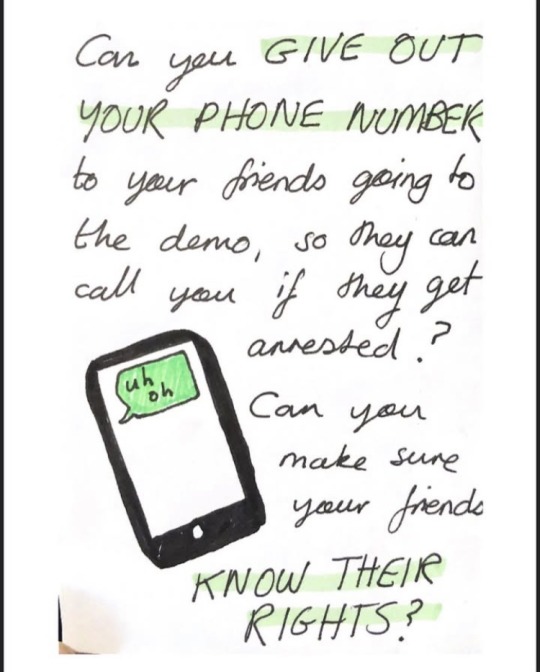 Can you GIVE OUT
YOUR PHONE NUMBER
to your friends going to
the demo, so they can
call you if they get
arrested.?
uh
oh
Can you
make sure
your friends
KNOW THEIR
RIGHTS?